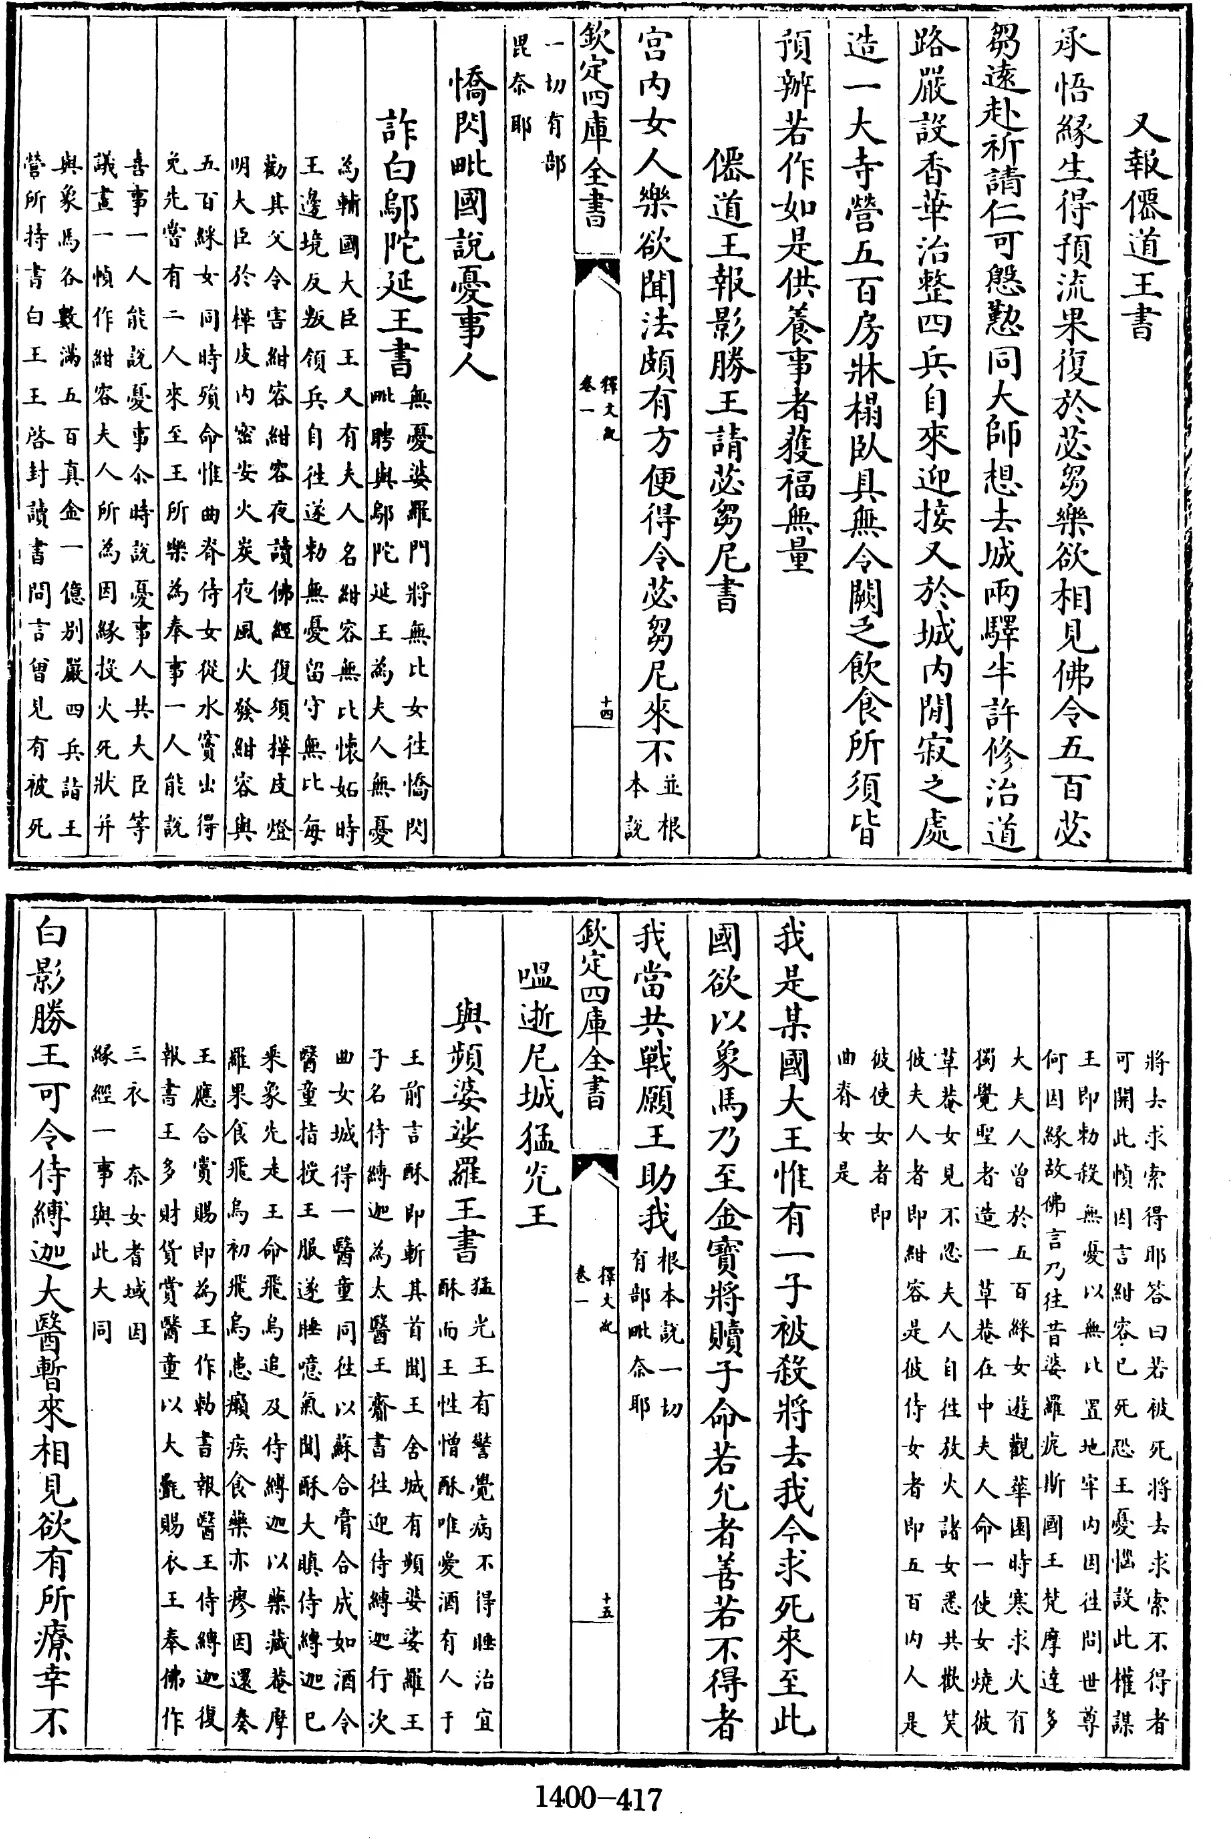 又報僊道王書
承悟緣生得預流果復於苾芻樂欲相見佛令五百苾
芻遠赴祈請仁可慇懃同大師想去城兩驛半許修治道
路嚴設香華治整四兵自來迎接又於城内閒寂之處
造一大寺營五百房牀榻臥具無令闕乏飲食所須皆
預辦若作如是供養事者獲福無量
僊道王報影勝王請苾芻尼書
宫内女人樂欲聞法頗有方便得令苾芻尼來不並根
本說
欽定四庫全書
釋文紀
卷一
十四
一切有部
毘奈耶
憍閃毗國說憂事人
詐白鄔陀延王書無憂婆羅門將無比女往憍閃
毗聘與鄔陀延王為夫人無憂
為輔國大臣王又有夫人名紺容無比懷妬時
王邊境反叛領兵自往遂勅無憂留守無比每
勸其父令害紺容紺容夜讀佛經復須樺皮燈
明大臣於樺皮内密安火炭夜風火發紺容與
五百婇女同時殞命惟曲脊侍女從水竇出得
免先嘗有二人來至王所樂為奉事一人能說
喜事一人能說憂事尒時說憂事人共大臣等
議畫一幀作紺容夫人所為因緣投火死狀并
與象馬各數滿五百真金一億别嚴四兵詣王
營所持書白王王啓封讀書問言曾見有被死
將去求索得耶答曰若被死將去求索不得者
可開此幀因言紺容已死恐王憂惱設此權謀
王即勅殺無憂以無比置地牢内因往問世尊
何因緣故佛言乃往昔婆羅疤斯國王梵摩達多
大夫人曾於五百婇女遊觀華園時寒求火有
獨覺聖者造一草菴在中夫人命一使女燒彼
草菴女見不忍夫人自往放火諸女悉共歡笑
彼夫人者即紺容是彼侍女者即五百内人是
彼使女者即
曲脊女是
我是某國大王惟有一子被殺將去我今求死來至此
國欲以象馬乃至金寶將贖子命若允者善若不得者
我當共戰願王助我根本說一切
有部毗奈耶
欽定四庫全書
釋文紀
卷一
十五
嗢逝尼城猛光王
與頻婆娑羅王書猛光王有警覺病不得睡治宜
酥而王性憎酥唯愛酒有人于
王前言酥即斬其首聞王舍城有頻婆娑羅王
子名侍縛迦為太醫王齎書往迎侍縛迦行次
曲女城得一醫童同往以蘇合膏合成如酒令
醫童指授王服遂睡噫氣聞酥大瞋侍縛迦已
乘象先走王命飛烏追及侍縛迦以藥藏菴摩
羅果食飛烏初飛烏患癩疾食藥亦瘳因還奏
王應合賞賜即為王作勅書報醫王侍縛迦復
報書王多財貨賞醫童以大㲲賜衣王奉佛作
三衣　柰女耆域因
緣經一事與此大同
白影勝王可令侍縛迦大醫暫來相見欲有所療幸不
1400-417